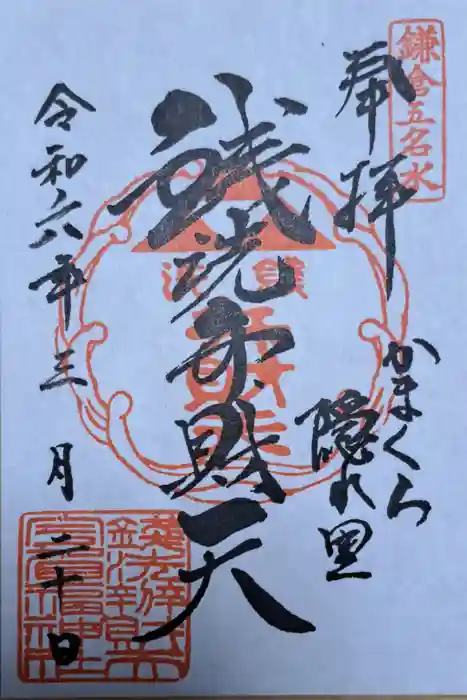 鎌倉五名水
奉拝
かまくら
隠れ里
銭洗弁財天
令和六年三月二十日